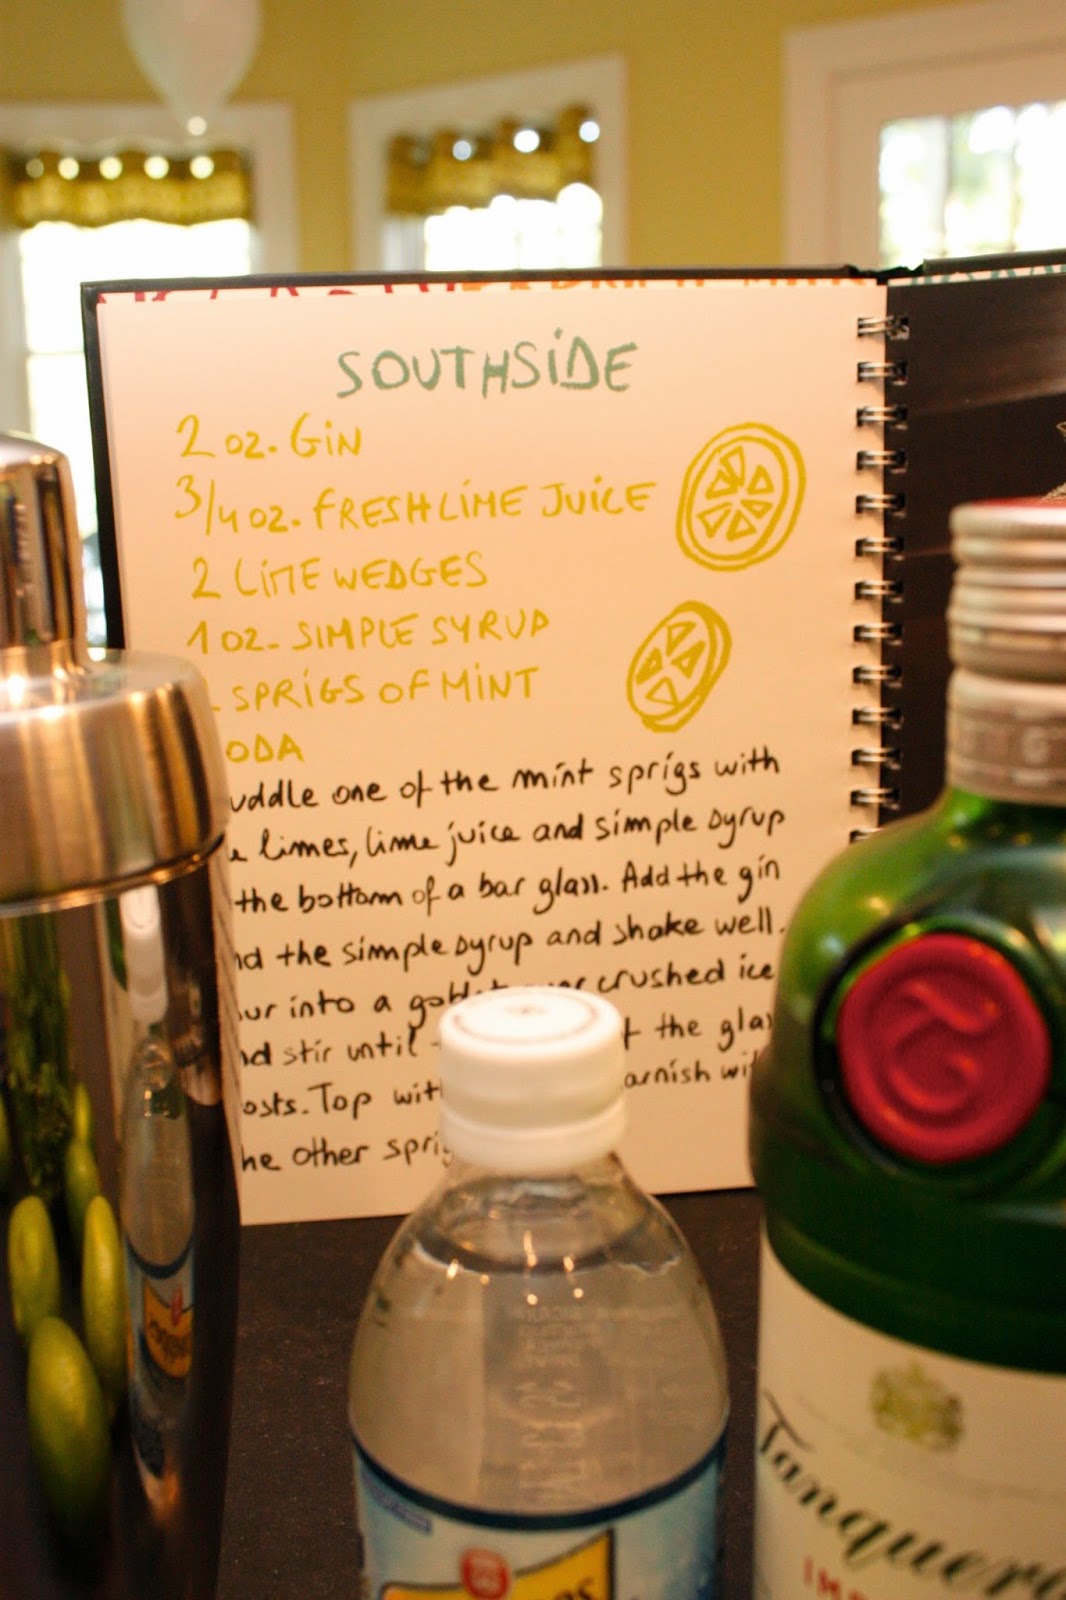 SOUTHSIDE
2 oz. GIN
3/4 oz. FRESH LIME JUICE
2 LIME WEDGES
1 oz. SIMPLE SYRUP
SPRIGS OF MINT
ODA
uddle one of the mint sprigs with
limes, lime juice and simple syrup
the bottom of a bar glass. Add the gin
nd the simple syrup and shake well.
ur into a goblet over crushed ice
nd stir until the glas
osts. Top with arnish with
he other sprig
Tanquera
IMP